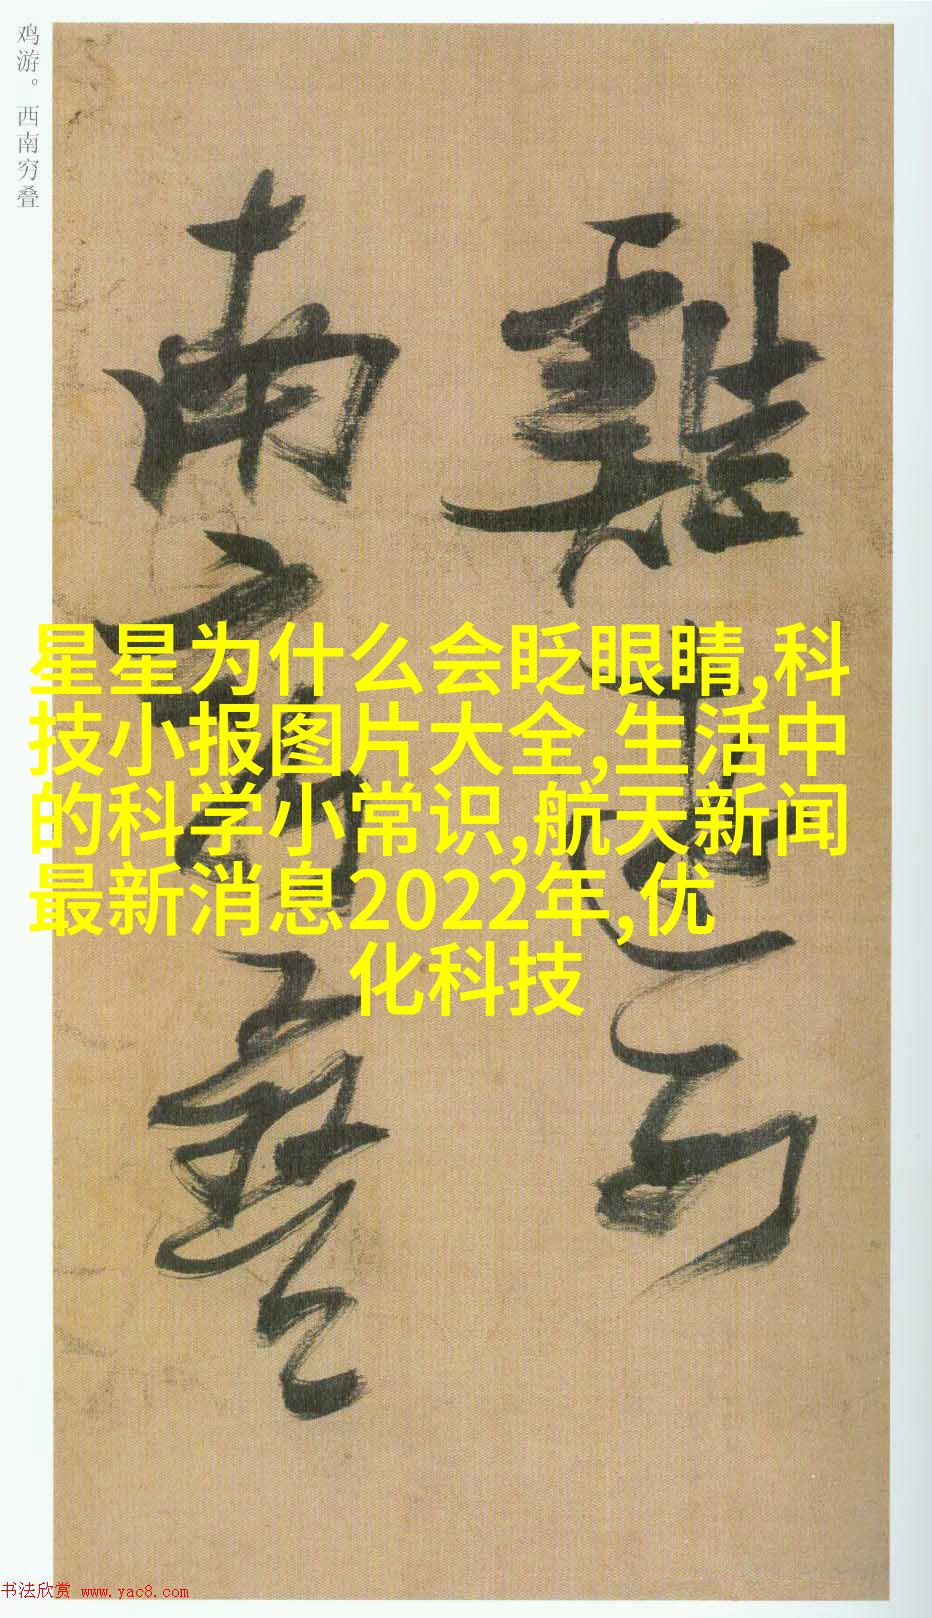 鸡游。西南穷叠
雞遊西
南窮疊
星星为什么会眨眼睛,科
技小报图片大全,生活中
的科学小常识,航天新闻
最新消息2022年,优
化科技
书法欣赏 www.yac8.com